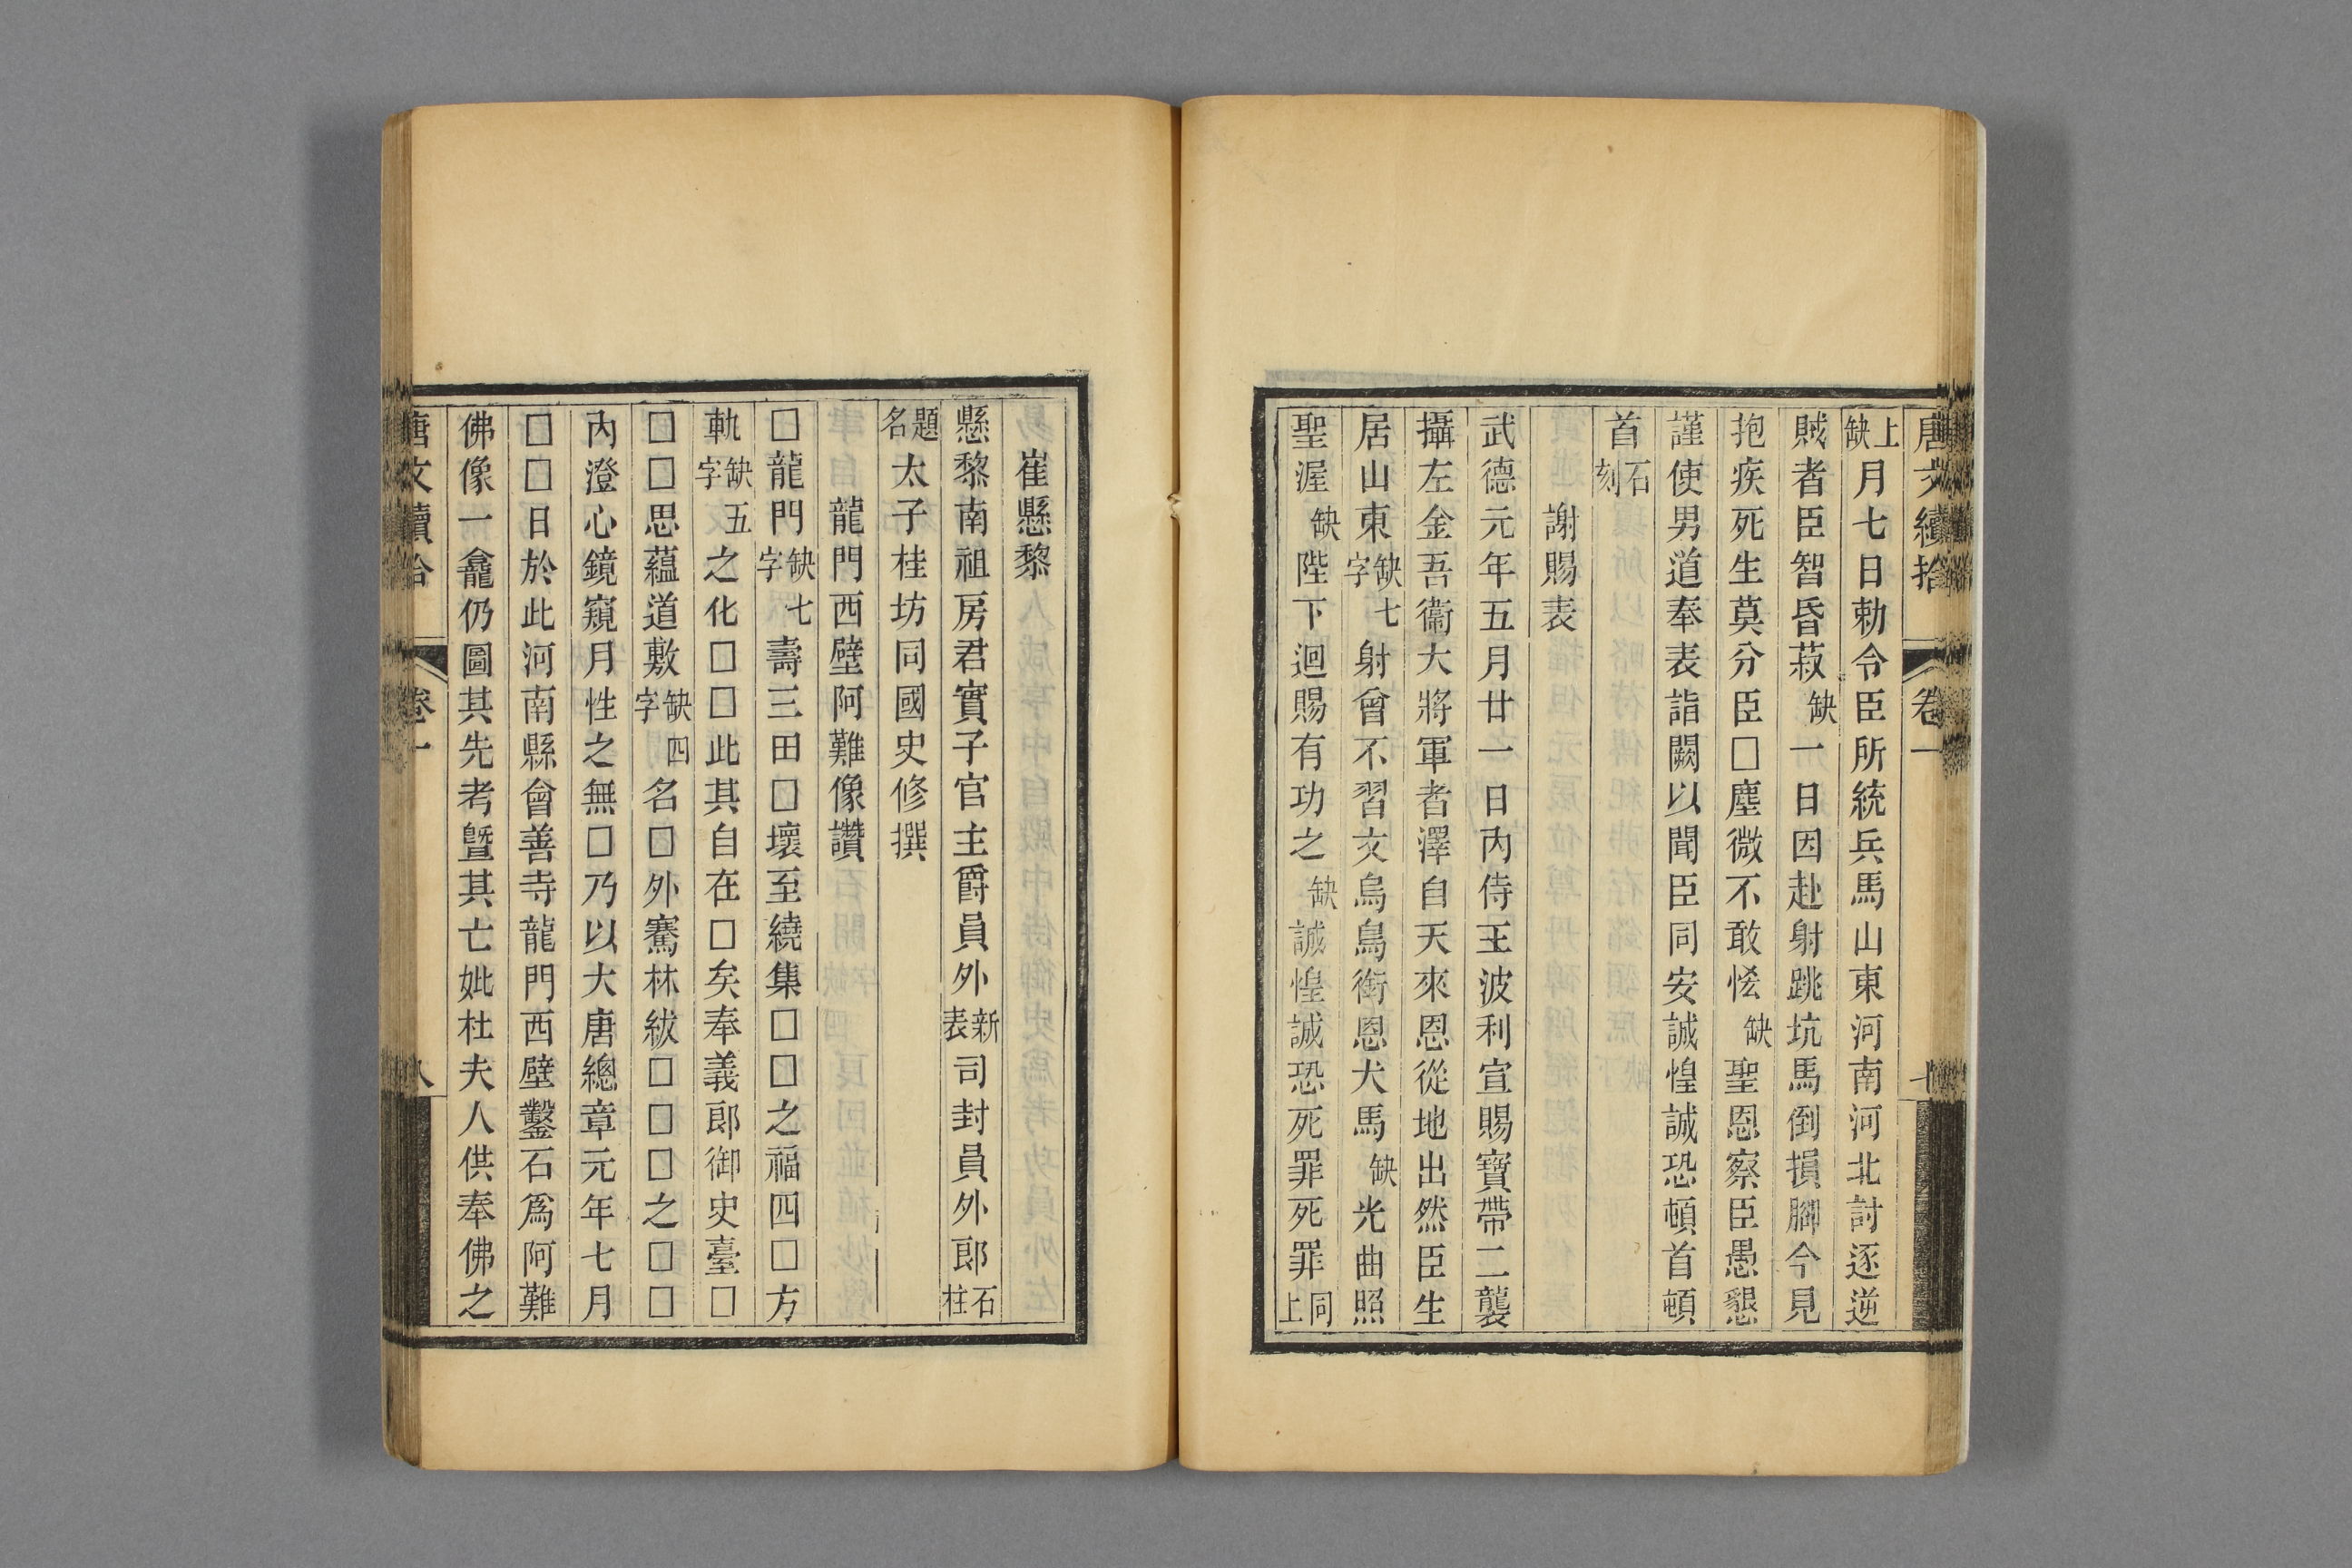 唐文續拾 卷一
上缺月七日勅令臣所統兵馬山東河南河北討逐逆
賊者臣智昏菽缺一日因赴射跳坑馬倒損腳今見
抱疾死生莫分臣□塵微不敢恡缺聖恩察臣愚懇
謹使男道奉表詣闕以聞臣同安誠惶誠恐頓首頓
首石刻
謝賜表
武德元年五月廿一日內侍王波利宣賜寶帶二襲
攝左金吾衞大將軍者澤自天來恩從地出然臣生
居山東缺七字射曾不習文烏鳥銜恩犬馬缺光曲照
聖渥缺陛下迴賜有功之缺誠惶誠恐死罪死罪同上
崔懸黎
懸黎南祖房君實子官主爵員外新表司封員外郎石柱
題名太子桂坊同國史修撰
龍門西壁阿難像讚
□龍門缺七字壽三田□壞至繞集□□之福四□方
軌缺五字之化□□此其自在□矣奉義郎御史臺□
□□思蘊道敷缺四字名□外騫林紱□□□之□□
內澄心鏡窺月性之無□乃以大唐總章元年七月
□□日於此河南縣會善寺龍門西壁鑿石爲阿難
佛像一龕仍圖其先考曁其亡妣杜夫人供奉佛之
唐文續拾 卷一 八